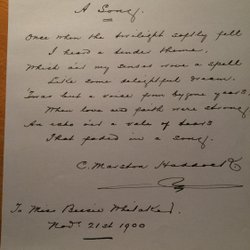 A Song.
Once when the twilight softly fell
I heard a tender theme,
Which o'er my senses wove a spell
Like some delightful dream.
'Twas but a voice from bygone years
When love and faith were strong
An echo o'er a vale of tears
That faded in a song.
C. Marston Haddock
To Miss Bessie Whitaker.
Novr 21st 1900